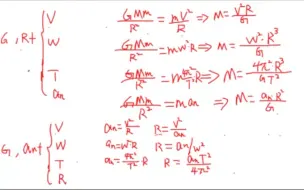 G, R+ { V W T an
GMm/R² = mV²/R ⇒ M = V²R/G
GMm/R² = mω²R ⇒ M = ω²R³/G
GMm/R² = m4π²/T² R ⇒ M = 4π²R³/GT²
GMm/R² = man ⇒ M = anR²/G
G, an+ { V W T R
an = V²/R R = V²/an
an = ω²R R = an/ω²
an = 4π²/T² R R = anT²/4π²